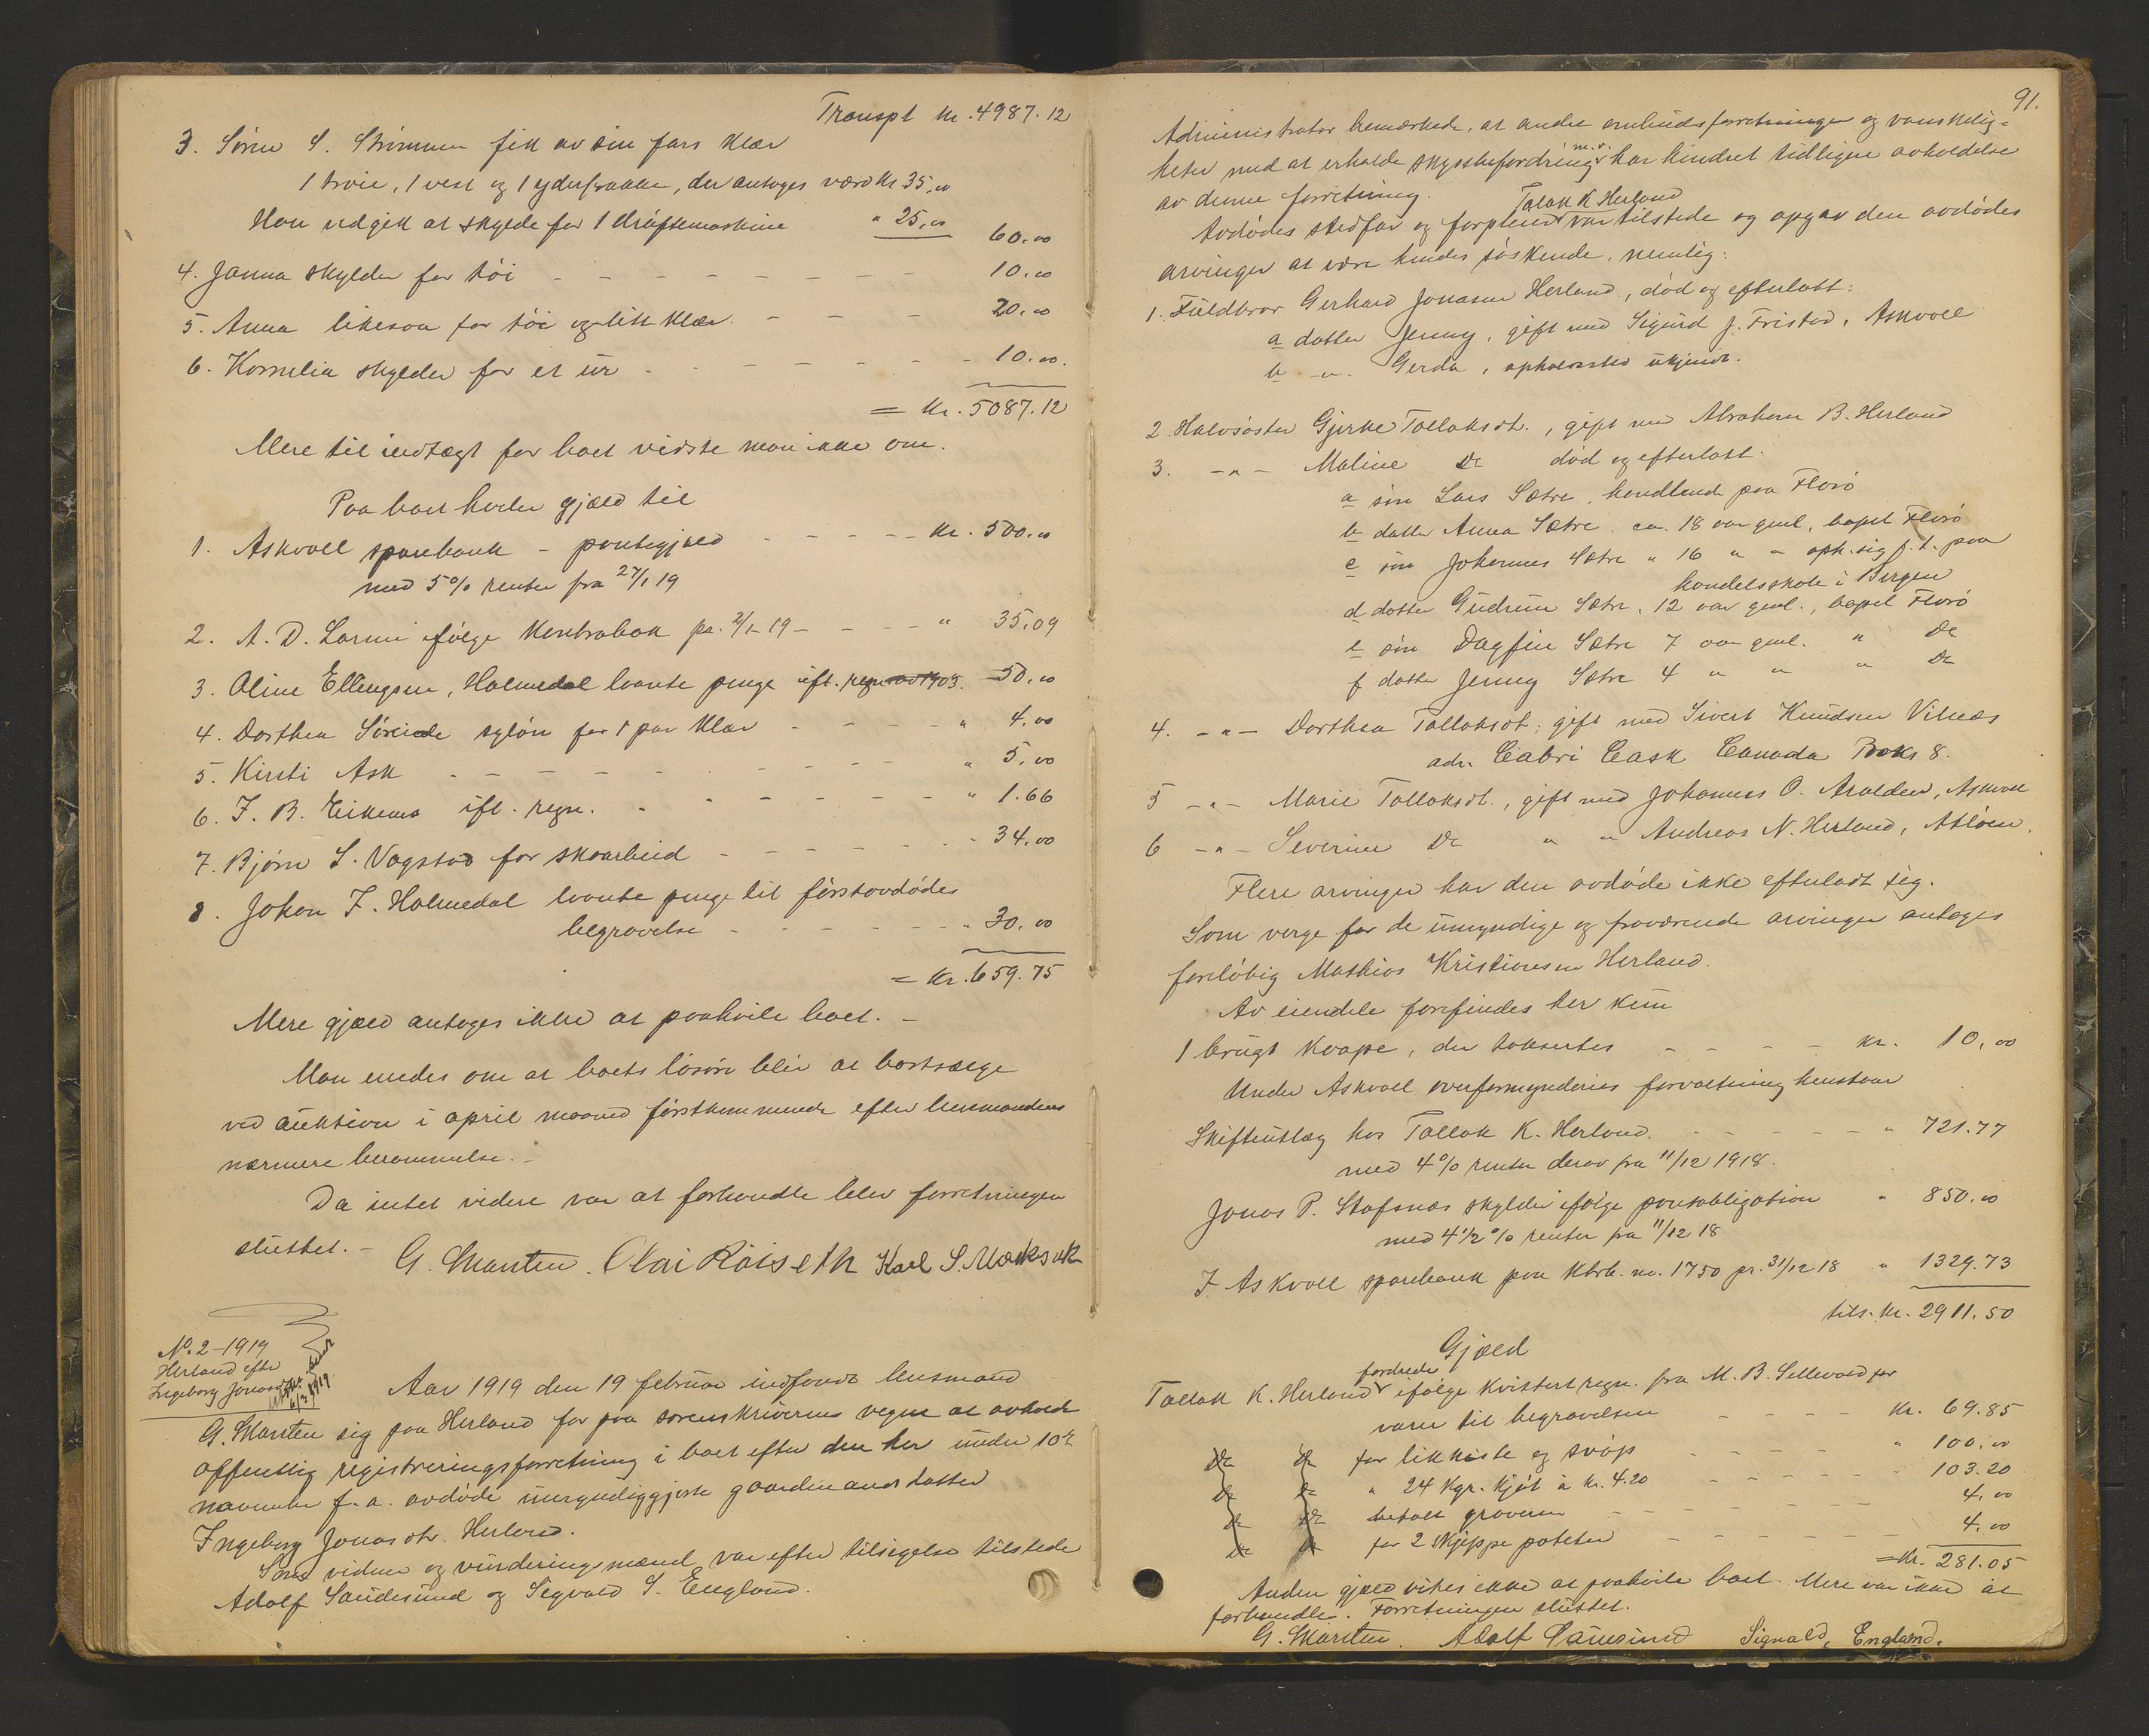 Transpt kr. 4987.12
3. Søren S. Strømmen fik av sin fars klær
1 trøie, 1 vest og 1 yderfrakke, der antoges værd kr 35,00
Han vedgik at skylde for 1 drøftemaskine " 25,00 60.00
4. Janna skylder for tøi - - - - - - - - 10.00
5. Anna likesaa for tøi og litt klær. - - - 20.00
6. Kornelia skylder for et ur - - - - - - 10.00.
= kr. 5087.12
Mere til indtægt for boet vidste man ikke om.
Paa boet hviler gjæld til
1. Askvoll sparebank - pantegjæld - - - - - kr. 500.00
med 5% renter fra 27/1 19
2. A. D. Larmi ifølge kontrabok pr. 2/1 19 - - - - " 35.09
3. Oline Ellingsen, Holmedal laante penge ifl. regn av 1903. 50.00
4. Dorthea Søreide syløn for 1 par klær - - - - " 4.00
5. Kirsti Ask - - - - - - - - - " 5.00
6. J. B. Eikenes ifl. regn. - - - - - - - " 1.66
7. Bjørn S. Vagstad for skoarbeid - - - - - - 34.00
8. Johan J. Holmedal laante penge til førstavdødes
begravelse - - - - - - - " 30.00
= kr. 659.75
Mere gjæld antoges ikke at paahvile boet. -
Man enedes om at boets løsøre blir at bortsælge
ved auktion i april maaned førstkommende efter lensmandens
nærmere berammelse. -
Da intet videre var at forhandle blev forretningen
sluttet. - G. Marsten. Olai Røiseth Karl S.
No. 2-1919
Herland efter
Ingeborg Jonasdtr.
6/3 1919
Aar 1919 den 19 februar indfandt lensmand
G. Marsten sig paa Herland for paa sorenskriverens vegne at avholde
offentlig registreringsforretning i boet efter den her under 10de
november f. a. avdøde umyndiggjorte gaardmandsdatter
Ingeborg Jonasdtr. Herland.
Som vidner og vurderingsmænd var efter tilsigelse tilstede
Adolf Sandesund og Sigvald S. England.
91.
Administrator bemerkede, at andre ombudsforretninger og vanskelig-
heter med at erholde skyssbefordring m.v. har hindret tidligere avholdelse
av denne forretning.
Talak K. Herland
Avdødes stedfar og forpleier var tilstede og opgav den avdødes
arvinger at være hendes søskende, nemlig:
1. Fuldbror Gerhard Jonasen Herland, død og efterlatt:
a datter Jenny, gift med Sigurd J. Fristad, Askvoll
b -"- Gerda, opholdssted ukjendt.
2. Halvsøster Gjerke Tollaksdt., gift med Abraham B. Herland
3. -"- Maline Do død og efterlatt.
a søn Lars Sætre, handlende paa Florø
b datter Anna Sætre ca. 18 aar gml, bopæl Florø
c søn Johannes Sætre " 16 " " oph. sig p.t. paa
handelsskole i Bergen
d datter Gudrun Sætre, 12 aar gml., bopæl Florø
e søn Dagfin Sætre 7 aar gml. " Do
f datter Jenny Sætre 4 " " " Do
4. -"- Dorthea Tollaksdt. gift med Sivert Knudsen Vilnæs
adr. Cabri Cask Canada Boks 8.
5 -"- Marie Tollaksdt., gift med Johannes O. Aralden, Askvoll
6 -"- Severine Do " " Andreas N. Herland, Atløen.
Flere arvinger har den avdøde ikke efterladt sig.
Som verge for de umyndige og fraværende arvinger antoges
foreløbig Mathias Kristiansen Herland.
Av eiendele forefindes her kun
1 brugt kaape, der taksertes - - - - kr. 10,00
Under Askvoll overformynderies forvaltning henstaar
Skifteutlæg hos Tollak K. Herland. - - - - - " 721.77
med 4% renter derav fra 11/12 1918.
Jonas P. Stafsnæs skylder ifølge panteobligation " 850.00
med 4½% renter fra 11/12 18
I Askvoll sparebank paa Ktrb. no. 1750 pr. 31/12 18 " 1329.73
tils. kr. 2911.50
Gjæld
Tollak K. Herland fordrede ifølge kvittert regn. fra M. B. Sellevold for
varer til begravelsen - - - - kr. 69.85
Do Do for likkiste og svøp - - - - " 100.00
Do Do " 24 kgr. kjøt à kr. 4.20 - - - - - 103.20
Do Do betalt graveren - - - - - - - 4.00
Do Do for 2 skjeppe poteter - - - - - - 4.00
= kr. 281.05
Anden gjæld vites ikke at paahvile boet. Mere var ikke at
forhandle. Forretningen sluttet.
G. Marsten. Adolf Sandesund Sigvald, England.